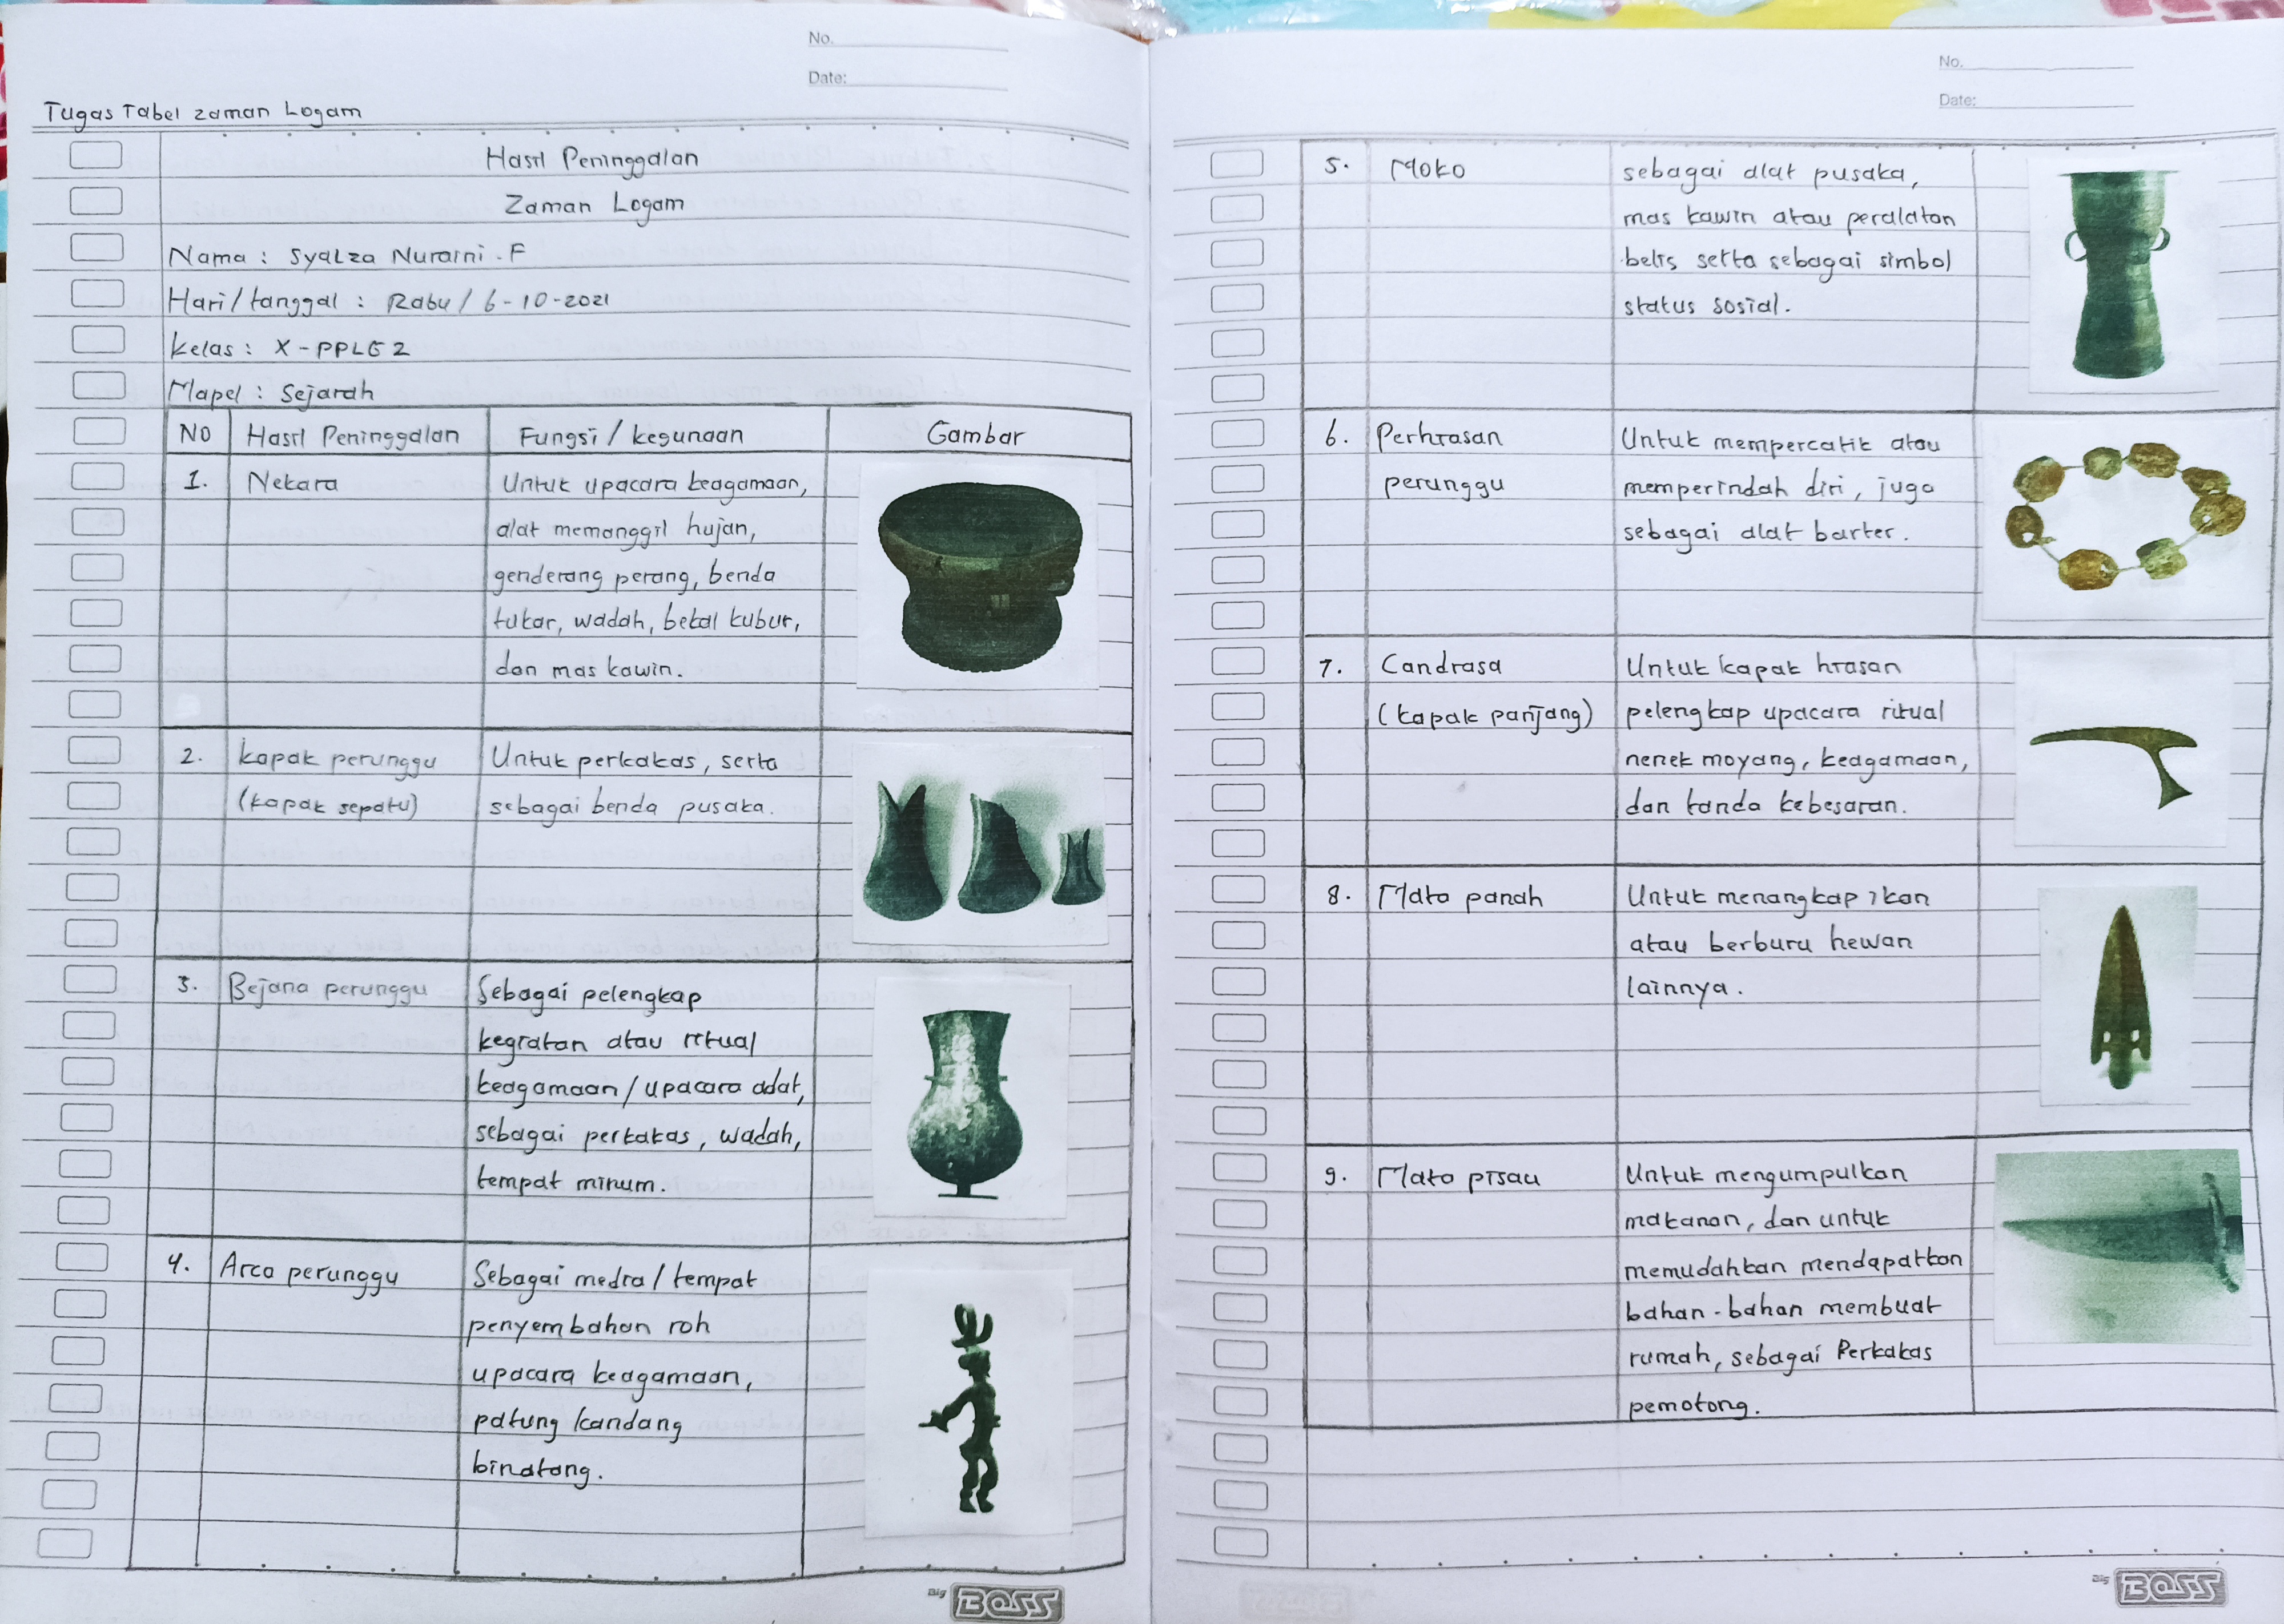 No.
Date:
Tugas Tabel zaman Logam
Hasil Peninggalan
Zaman Logam
Nama : Syalza Nuraini . F
Hari/tanggal : Rabu / 6-10-2021
Kelas : X - PPLG 2
Mapel : Sejarah
No Hasil Peninggalan Fungsi / kegunaan Gambar
1. Nekara Untuk upacara keagamaan,
alat memanggil hujan,
genderang perang, benda
tukar, wadah, bekal kubur,
dan mas kawin.
2. kapak perunggu Untuk perkakas, serta
(kapak sepatu) sebagai benda pusaka.
3. Bejana perunggu Sebagai pelengkap
kegiatan atau ritual
keagamaan / upacara adat,
sebagai perkakas, wadah,
tempat minum.
4. Arca perunggu Sebagai media / tempat
penyembahan roh
upacara keagamaan,
patung kandang
binatang.
Big BOSS
No.
Date:
5. Moko sebagai alat pusaka,
mas kawin atau peralatan
belis serta sebagai simbol
status sosial.
6. Perhiasan Untuk mempercatik atau
perunggu memperindah diri, juga
sebagai alat barter.
7. Candrasa Untuk kapak hiasan
(kapak panjang) pelengkap upacara ritual
nenek moyang, keagamaan,
dan tanda kebesaran.
8. Mata panah Untuk menangkap ikan
atau berburu hewan
lainnya.
9. Mata pisau Untuk mengumpulkan
makanan, dan untuk
memudahkan mendapatkan
bahan-bahan membuat
rumah, sebagai Perkakas
pemotong.
Big BOSS